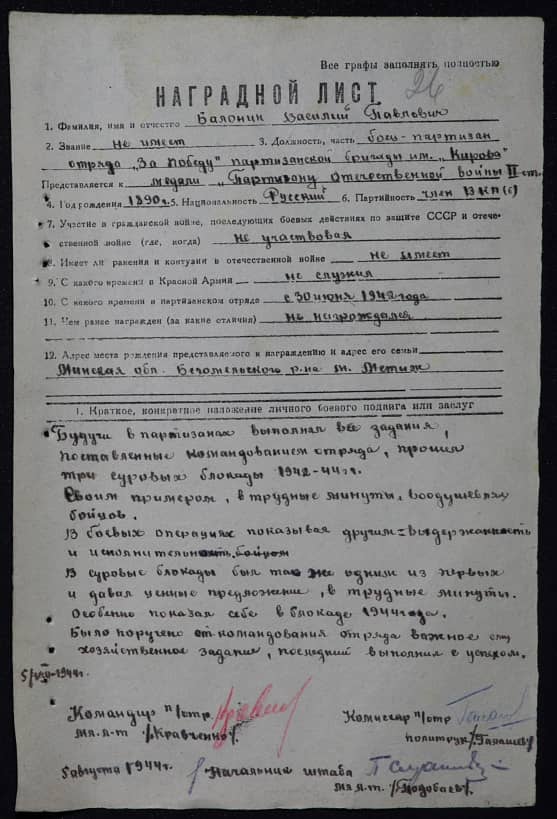 Все графы заполнять полностью
26
НАГРАДНОЙ ЛИСТ
1. Фамилия, имя и отчество Балонин Василий Павлович
2. Звание не имеет 3. Должность, часть боец-партизан
отряда „За Победу" партизанской бригады им. „Кирова"
Представляется к медали „Партизану Отечественной войны II ст.
4. Год рождения 1890г. 5. Национальность Русский 6. Партийность член ВКП(б)
7. Участие в гражданской войне, последующих боевых действиях по защите СССР и отече-
ственной войне (где, когда) не участвовал
8. Имеет ли ранения и контузии в отечественной войне не имеет
9. С какого времени в Красной Армии не служил
10. С какого времени в партизанском отряде с 30 июня 1942 года
11. Чем ранее награжден (за какие отличия) не награждался
12. Адрес места рождения представляемого к награждению и адрес его семьи
Минская обл. Бегомельского р-на м. Мстиж
1. Краткое, конкретное изложение личного боевого подвига или заслуг
Будучи в партизанах выполнял все задания,
поставленные командованием отряда, прошел
три суровых блокады 1942-44гг.
Своим примером, в трудные минуты, воодушевлял
бойцов.
В боевых операциях показывал другим = выдержанность
и исполнительность бойцом
В суровые блокады был так же одним из первых
и давал ценные предложение, в трудные минуты.
Особенно показал себе в блокаде 1944 года.
Было поручено от командования отряда важное ему
хозяйственное задание, последний выполнил с успехом.
5/VIII-1944г.
Командир п/отр.
Комиссар п/отр
мл. л-т /Кравченко/
политрук /Галашев/
5 августа 1944г. Начальник штаба
мл. л-т. /Подобаев/